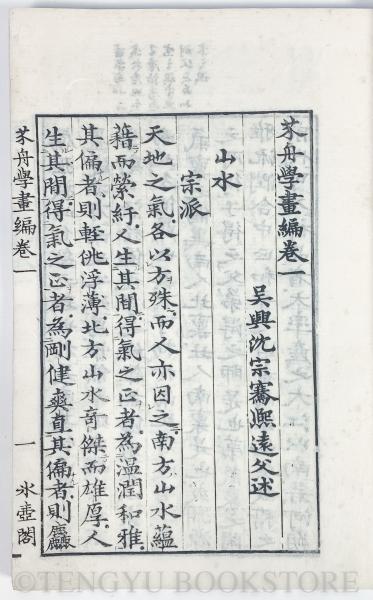 芥舟學畫編卷一
吳興沈宗騫熙遠父述
山水
宗派
天地之氣各以方殊而人亦因之南方山水蘊
藉而縈紆人生其間得氣之正者為溫潤和雅
其偏者則輕佻浮薄北方山水奇傑而雄厚人
生其間得氣之正者為剛健爽直其偏者則麤
芥舟學畫編卷一
一
氷壺閣
©TENGYU BOOKSTORE